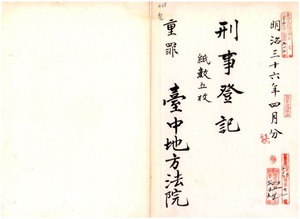 明治三十六年四月分
刑事登記
紙數五枚
重罪
臺中地方法院